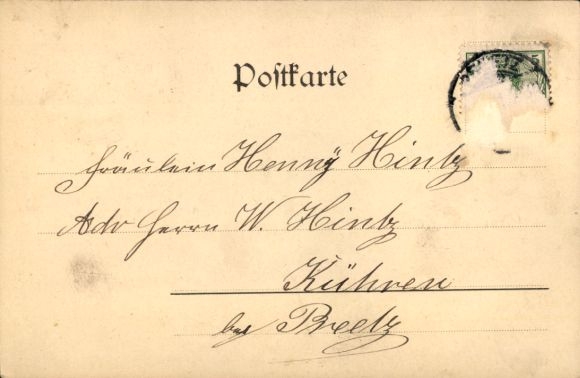 Postkarte
Fräulein Henny Hintz
Adr Herrn W. Hintz
Kühren
bei Preetz